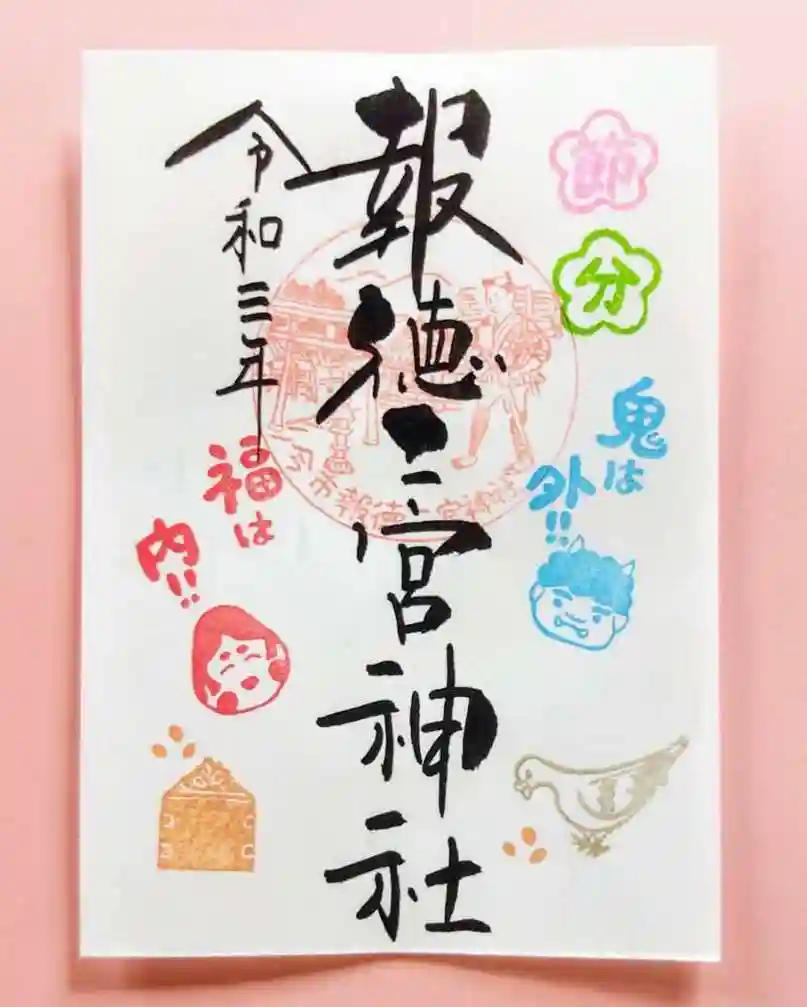 節
分
鬼は
外!!
報徳二宮神社
今市報徳二宮神社
令和三年
福は
内!!